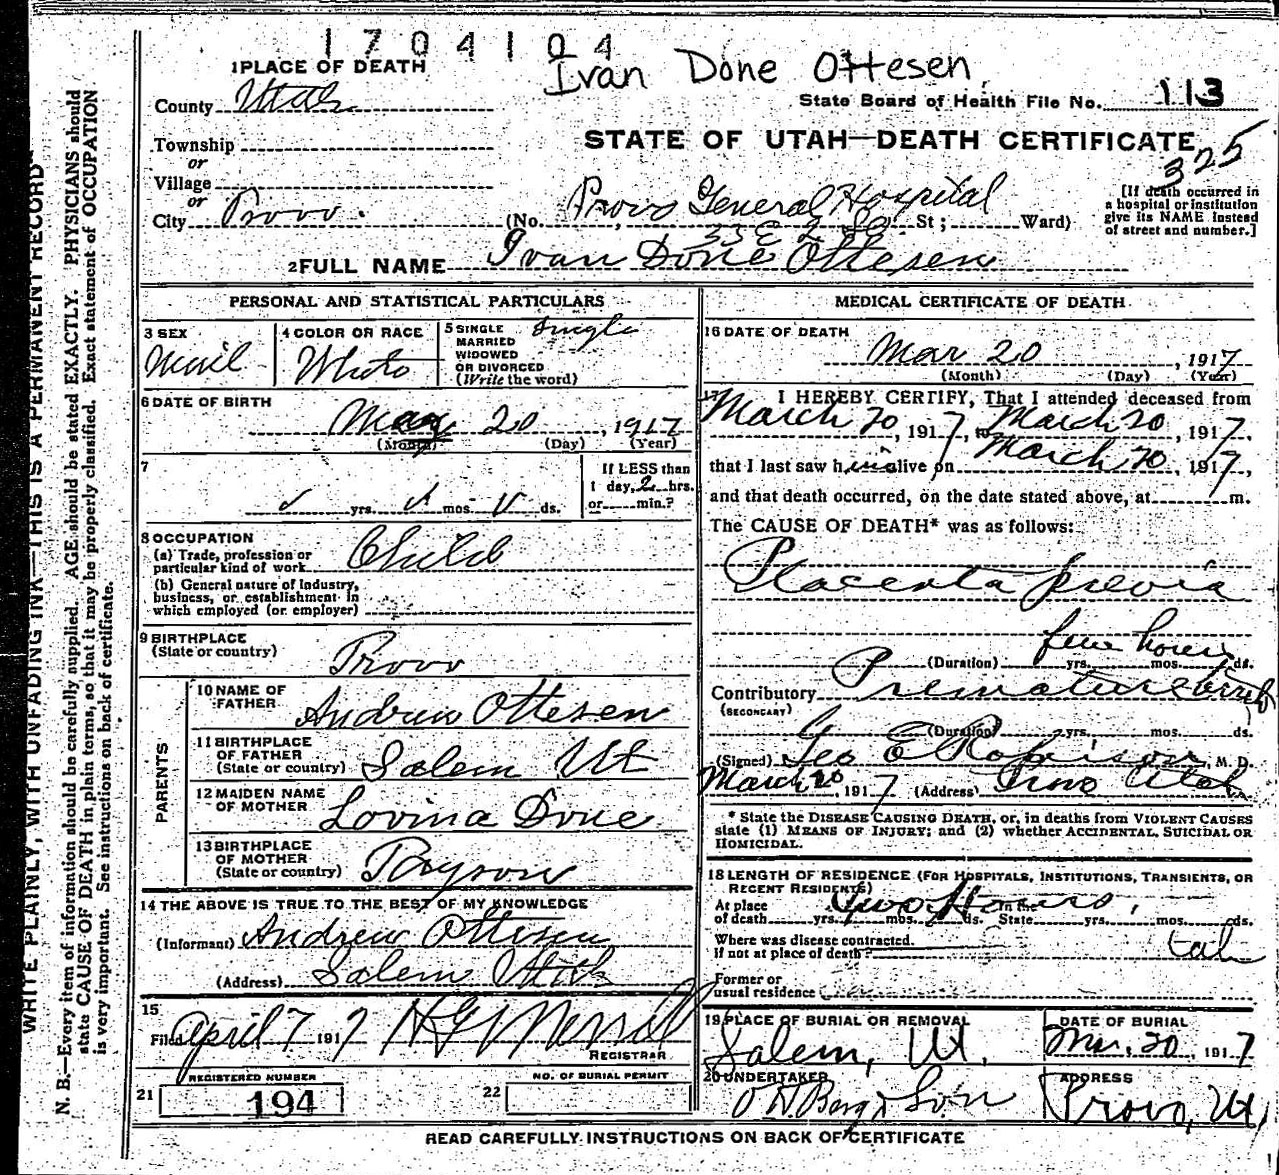 1704104
Ivan Done Ottesen
1 PLACE OF DEATH
County Utah
State Board of Health File No. 113
STATE OF UTAH—DEATH CERTIFICATE
325
Township
or
Village
or
City Provo.
(No. Provo General Hospital St; Ward)
33 E 2 So
[If death occurred in
a hospital or institution
give its NAME instead
of street and number.]
2 FULL NAME Ivan Done Ottesen
PERSONAL AND STATISTICAL PARTICULARS
3 SEX
4 COLOR OR RACE
5 SINGLE
MARRIED
WIDOWED
OR DIVORCED
(Write the word)
Single
White
6 DATE OF BIRTH
Mar 20, 1917
(Month) (Day) (Year)
7
yrs. mos. ds.
If LESS than
1 day, 2 hrs.
or min.?
8 OCCUPATION
(a) Trade, profession or
particular kind of work Child
(b) General nature of industry,
business, or establishment in
which employed (or employer)
9 BIRTHPLACE
(State or country) Provo
PARENTS
10 NAME OF
FATHER Andrew Ottesen
11 BIRTHPLACE
OF FATHER
(State or country) Salem Ut
12 MAIDEN NAME
OF MOTHER Lovina Done
13 BIRTHPLACE
OF MOTHER
(State or country) Payson
14 THE ABOVE IS TRUE TO THE BEST OF MY KNOWLEDGE
(Informant) Andrew Ottesen
(Address) Salem Utah
15
Filed April 7 1917
REGISTRAR
REGISTERED NUMBER
21 194
NO. OF BURIAL PERMIT
22
MEDICAL CERTIFICATE OF DEATH
16 DATE OF DEATH
Mar 20, 1917
(Month) (Day) (Year)
17 I HEREBY CERTIFY, That I attended deceased from
March 20, 1917, to March 20, 1917,
that I last saw him alive on March 20, 1917,
and that death occurred, on the date stated above, at m.
The CAUSE OF DEATH* was as follows:
Placenta previa
few hours
(Duration) yrs. mos. ds.
Contributory Premature birth
(SECONDARY)
(Duration) yrs. mos. ds.
(Signed) Geo E Robison, M. D.
March 20, 1917 (Address) Provo Utah
* State the DISEASE CAUSING DEATH, or, in deaths from VIOLENT CAUSES
state (1) MEANS OF INJURY; and (2) whether ACCIDENTAL, SUICIDAL OR
HOMICIDAL.
18 LENGTH OF RESIDENCE (FOR HOSPITALS, INSTITUTIONS, TRANSIENTS, OR
RECENT RESIDENTS)
Two Hours.
At place In the
of death yrs. mos. ds. State yrs. mos. ds.
Where was disease contracted,
if not at place of death?
Former or
usual residence
19 PLACE OF BURIAL OR REMOVAL
Salem, Ut.
DATE OF BURIAL
Mar. 20, 1917
20 UNDERTAKER
O H Berg & Son
ADDRESS
Provo, Ut,
READ CAREFULLY INSTRUCTIONS ON BACK OF CERTIFICATE
WRITE PLAINLY, WITH UNFADING INK—THIS IS A PERMANENT RECORD
N. B.—Every item of information should be carefully supplied. AGE should be stated EXACTLY. PHYSICIANS should
state CAUSE OF DEATH in plain terms, so that it may be properly classified. Exact statement of OCCUPATION
is very important. See instructions on back of certificate.